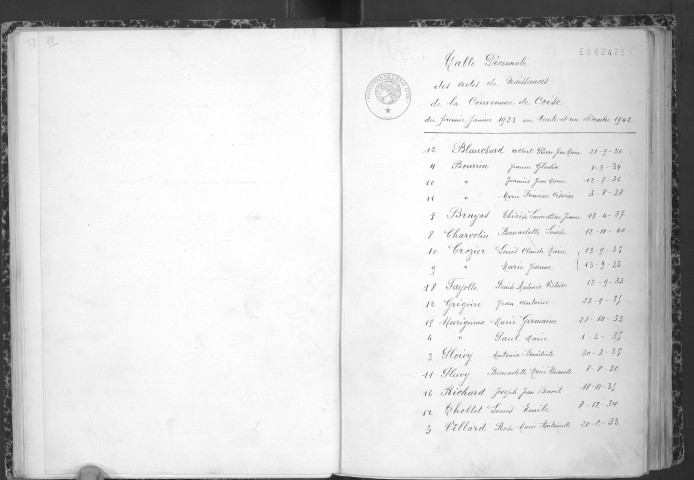 E562425
Table Décennale
des actes de Naissances
de la Commune de Coise
du premier Janvier 1933 au trente et un décembre 1942
12 Blanchard Albert Pierre Jean Marie 21-9-36
4 Bourrin Jeanne Claudia 1-3-34
10 " Joannès Jean Marie 12-7-36
11 " Marie 3-8-38
Bruyas Thérèse Jeanne 13-4-37
8 Charvolin Bernadette 12-11-40
10 Crozier Louis Claude Marie 13-9-35
9 " Marie Jeanne 13-9-35
18 Fayolle Louis Antoine Victoire 13-9-33
12 Grégoire Jean Antoine 23-9-35
19 Murigneux Marie Germaine 28-10-33
4 " Paul Marie 1-2-35
3 Antonia Bénédicte 30-3-35
11 Bernadette Marie 8-8-36
16 Richard Joseph Jean Benoit 18-11-35
12 Thollet Louis Emile 8-12-34
5 Villard Rose Marie Antoinette 20-2-33